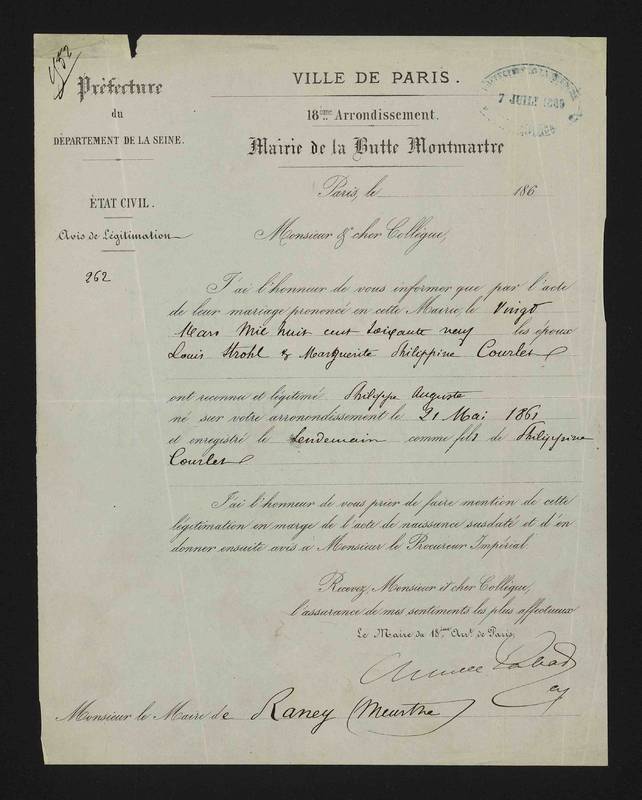 Préfecture
du
DÉPARTEMENT DE LA SEINE.
ÉTAT CIVIL.
Avis de Légitimation
262
VILLE DE PARIS.
18ème Arrondissement.
Mairie de la Butte Montmartre
7 JUIL 1869
Paris, le 186
Monsieur & cher Collègue,
J'ai l'honneur de vous informer que par l'acte
de leur mariage prononcé en cette Mairie, le Vingt
Mars Mil huit cent soixante neuf les époux
Louis Strohl & Marguerite Philippine Courlet
ont reconnu et légitimé Philippe Auguste
né sur votre arronondissement le 21 Mai 1861
et enregistré le Lendemain comme fils de Philippine
Courlet
J'ai l'honneur de vous prier de faire mention de cette
légitimation en marge de l'acte de naissance susdaté et d'en
donner ensuite avis à Monsieur le Procureur Impérial.
Recevez, Monsieur et cher Collègue,
l'assurance de mes sentiments les plus affectueux
Le Maire du 18ème Arrt. de Paris,
Monsieur le Maire de Raney (Meurthe)